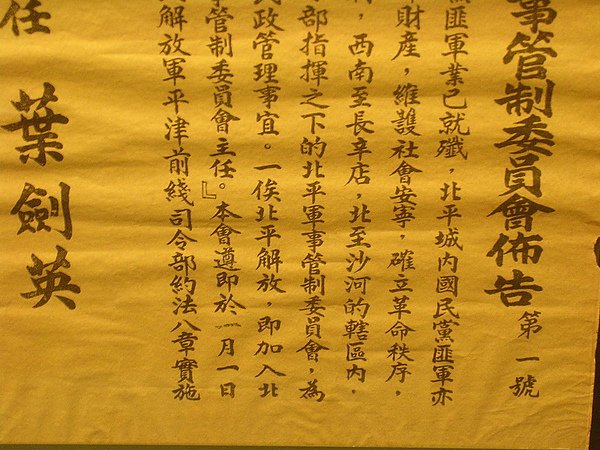 事管制委員會佈告
第一號
匪軍業已就殲，北平城内國民黨匪軍亦
財產，維護社會安寧，確立革命秩序，
西南至長辛店，北至沙河的轄區内，
部指揮之下的北平軍事管制委員會，為
民政管理事宜。一俟北平解放，即加入北
管制委員會主任。』本會遵即於一月一日
解放軍平津前綫司令部約法八章實施
任
葉劍英